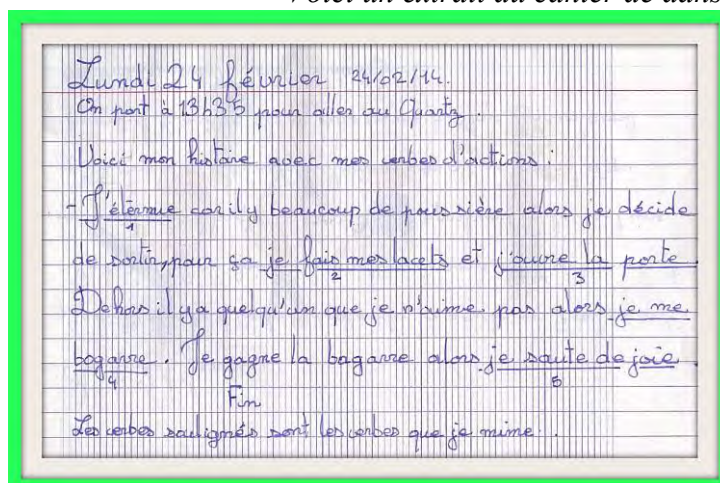 Voici un extrait du cahier de dans
Lundi 24 février 24/02/14.
On part à 13h35 pour aller au Quartz.
Voici mon histoire avec mes verbes d'actions :
- J'éternue car il y beaucoup de poussière alors je décide
1
de sortir, pour ça je fais mes lacets et j'ouvre la porte.
2 3
Dehors il y a quelqu'un que je n'aime pas alors je me
bagarre. Je gagne la bagarre alors je saute de joie.
4 5
Fin
Les verbes soulignés sont les verbes que je mime.